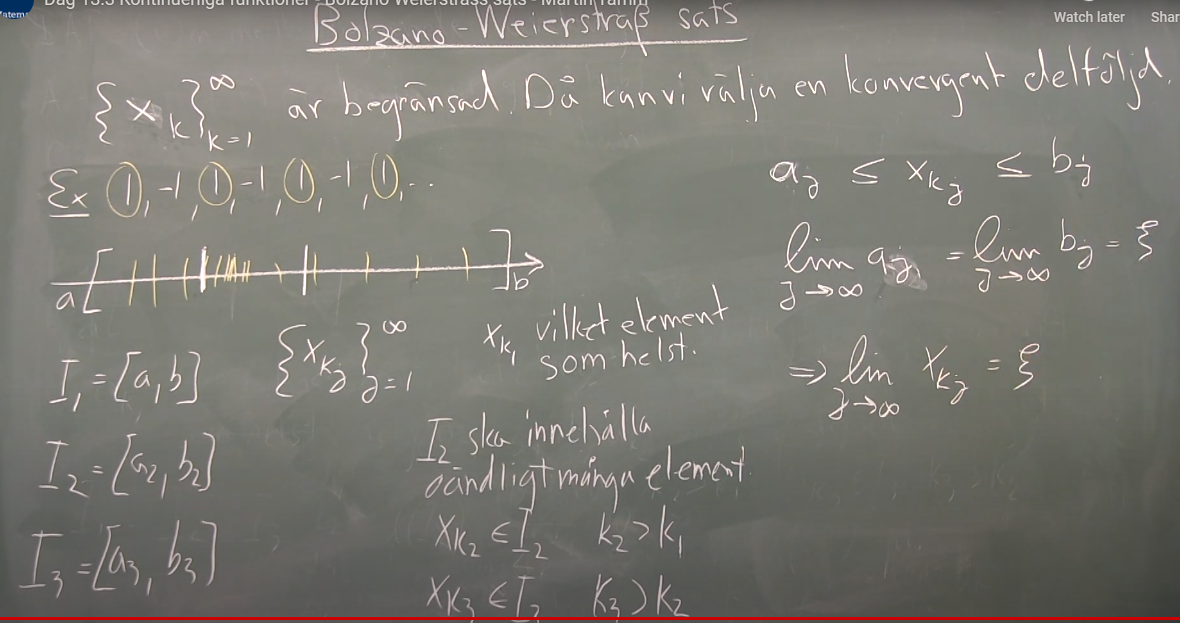 Dag 13.3 Kontinuerliga funktioner - Bolzano Weierstrass sats - Martin Tamm
Watch later
Shar
Bolzano-Weierstraß sats
{x_k}_{k=1}^∞ är begränsad. Då kan vi välja en konvergent delföljd.
Ex 1, -1, 1, -1, 1, -1, 1, ...
a [ ] b
I_1 = [a, b]
{x_{k_j}}_{j=1}^∞
x_{k_1} vilket element
som helst.
I_2 = [a_2, b_2]
I_2 ska innehålla
oändligt många element.
I_3 = [a_3, b_3]
x_{k_2} ∈ I_2 k_2 > k_1
x_{k_3} ∈ I_3 k_3 > k_2
a_j ≤ x_{k_j} ≤ b_j
lim_{j→∞} a_j = lim_{j→∞} b_j = ξ
⇒ lim_{j→∞} x_{k_j} = ξ